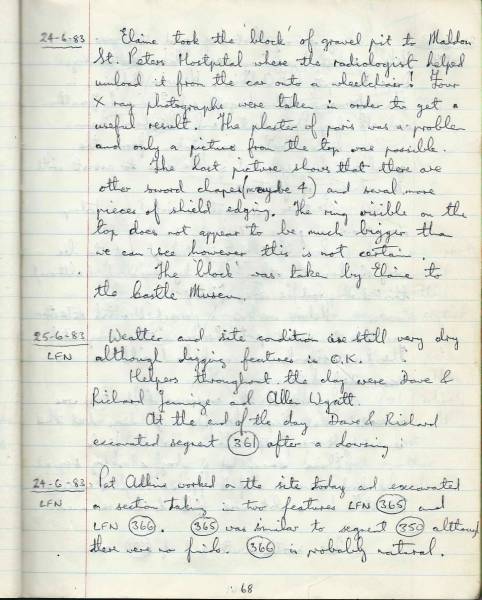 24-6-83. Elaine took the 'block' of gravel pit to Maldon
St. Peters Hostpital where the radiologist helped
unload it from the car onto a wheelchair! Four
X ray photographs were taken in order to get a
useful result. The plaster of paris was a problem
and only a picture from the top was possible.
The last picture shows that there are
other sword chapes (maybe 4) and seval more
pieces of shield edging. The ring visible on the
top does not appear to be much bigger than
we can see however this is not certain.
The 'block' was taken by Elaine to
the Castle Museum.
25-6-83 Weather and site condition are still very dry
LFN although digging features is O.K.
Helpers throughout the day were Dave &
Richard Jennings and Allen Wyatt.
At the end of the day Dave & Richard
excavated segment 361 after a dowsing
24-6-83. Pat Adkins worked on the site today and excavated
LFN a section taking in two features LFN 365 and
LFN 366. 365 was similar to segment 350 although
there were no finds. 366 is probably natural.
68